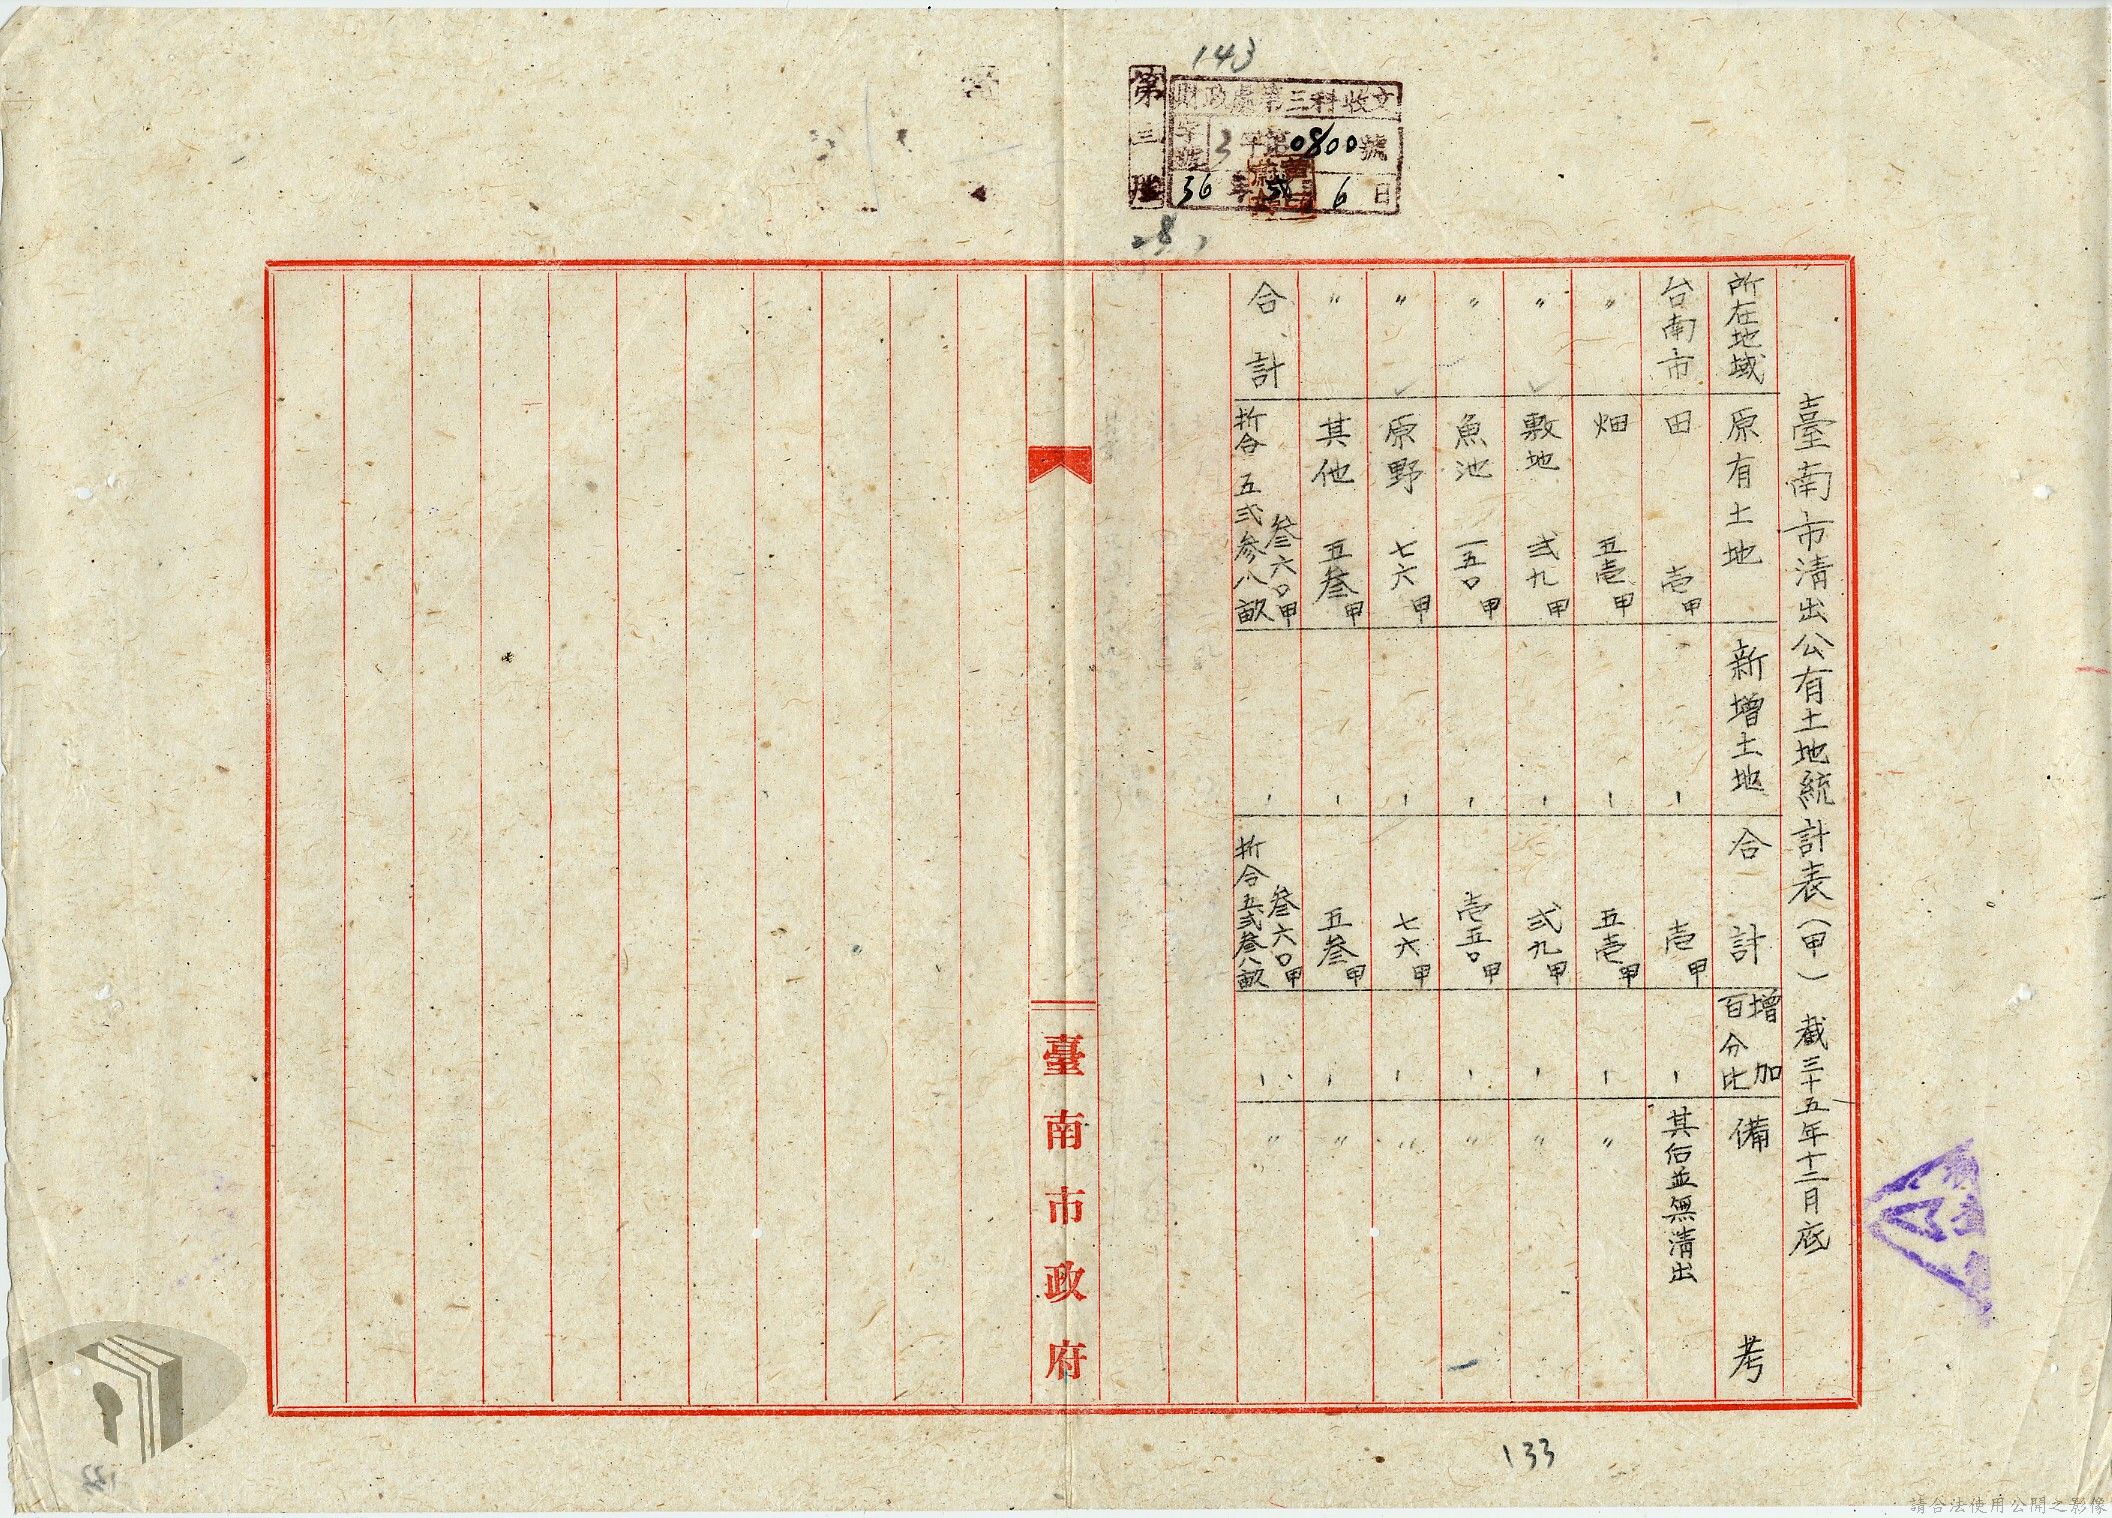 143
第三股
財政處第三科收文
字號 3字第0800號
36年 弍月 6日
28
臺南市清出公有土地統計表(甲) 截三十五年十二月底
所在地域 原有土地 新增土地 合計 增加百分比 備考
台南市 田 壱甲 - 壱甲 - 其佰並無清出
〃 畑 五壱甲 - 五壱甲 - 〃
〃 敷地 弍九甲 - 弍九甲 - 〃
〃 魚池 一五〇甲 - 壱五〇甲 - 〃
〃 原野 七六甲 - 七六甲 - 〃
〃 其他 五叄甲 - 五叄甲 - 〃
合計 叄六〇甲 折合五弍参八畝 - 叄六〇甲 折合五弍叄八畝 - 〃
臺南市政府
133
請合法使用公開之影像